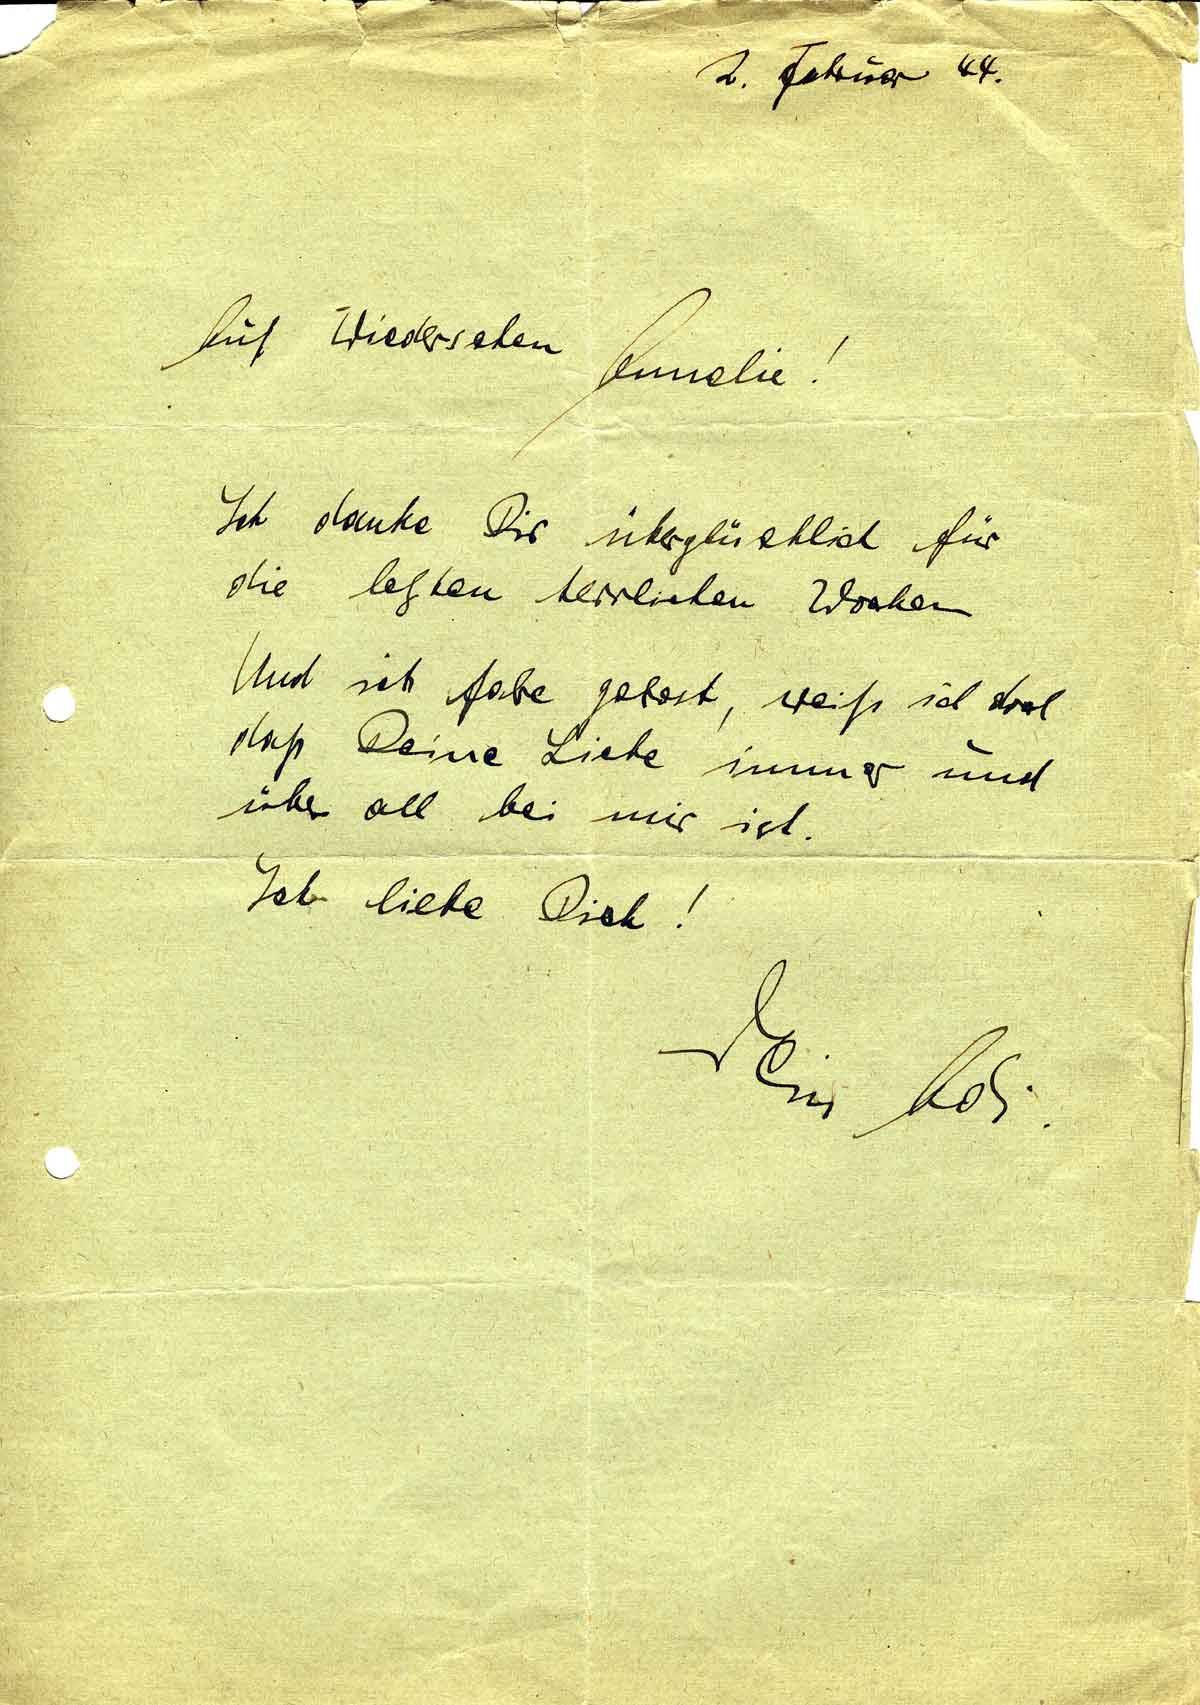 2. Februar 44.
Auf Wiedersehen Annelie!
Ich danke Dir überglücklich für
die letzten herrlichen Wochen
Und ich fahre getrost, weiß ich doch
daß Deine Liebe immer und
über all bei mir ist.
Ich liebe Dich!
Dein Adi.